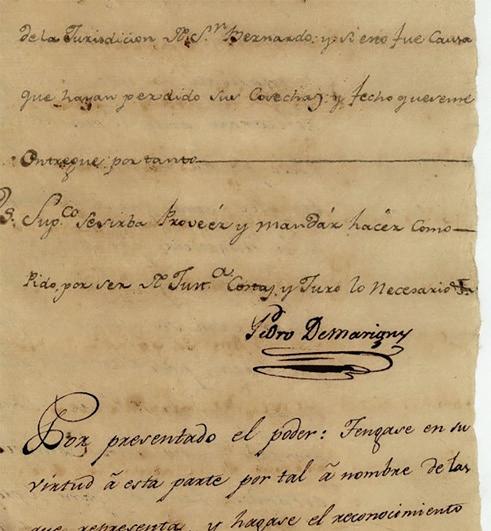 de la Jurisdicion de Sn. Bernardo: y si esto fue Causa
que hayan perdido sus Cosechas; y fecho que se me
Entregue: por tanto
Supco. se sirba Proveér y mandár hacér como
Pido, por ser de Costas, y Juro lo Necesario &.
Pedro Demarigny
Por presentado el poder: Tengase en su
virtud á esta parte por tal á nombre de las
que representa, y hagase el reconocimiento